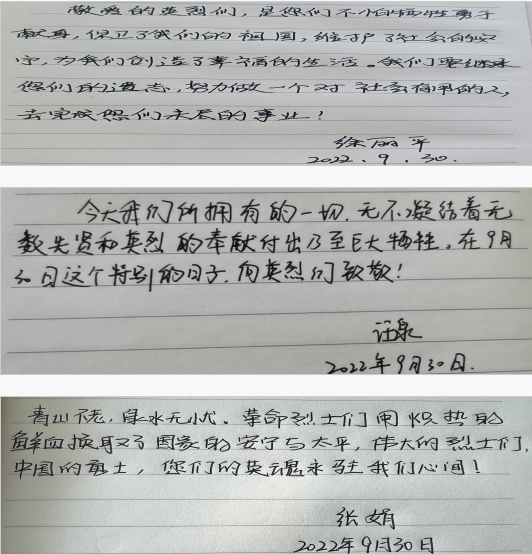 敬爱的英烈们，是您们不怕牺牲勇于
献身，保卫了我们的祖国，维护了社会的安
宁，为我们创造了幸福的生活。我们要继承
您们的遗志，努力做一个对社会有用的人，
去完成您们未尽的事业！
徐丽平
2022.9.30.
今天我们所拥有的一切，无不凝结着无
数先贤和英烈的奉献付出乃至巨大牺牲。在9月
30日这个特别的日子，向英烈们致敬！
汪泉
2022年9月30日.
青山不老，绿水无忧。革命烈士们用炽热的
鲜血换取了国家的安宁与太平，伟大的烈士们，
中国的勇士，您们的英魂永驻我们心间！
张娟
2022年9月30日